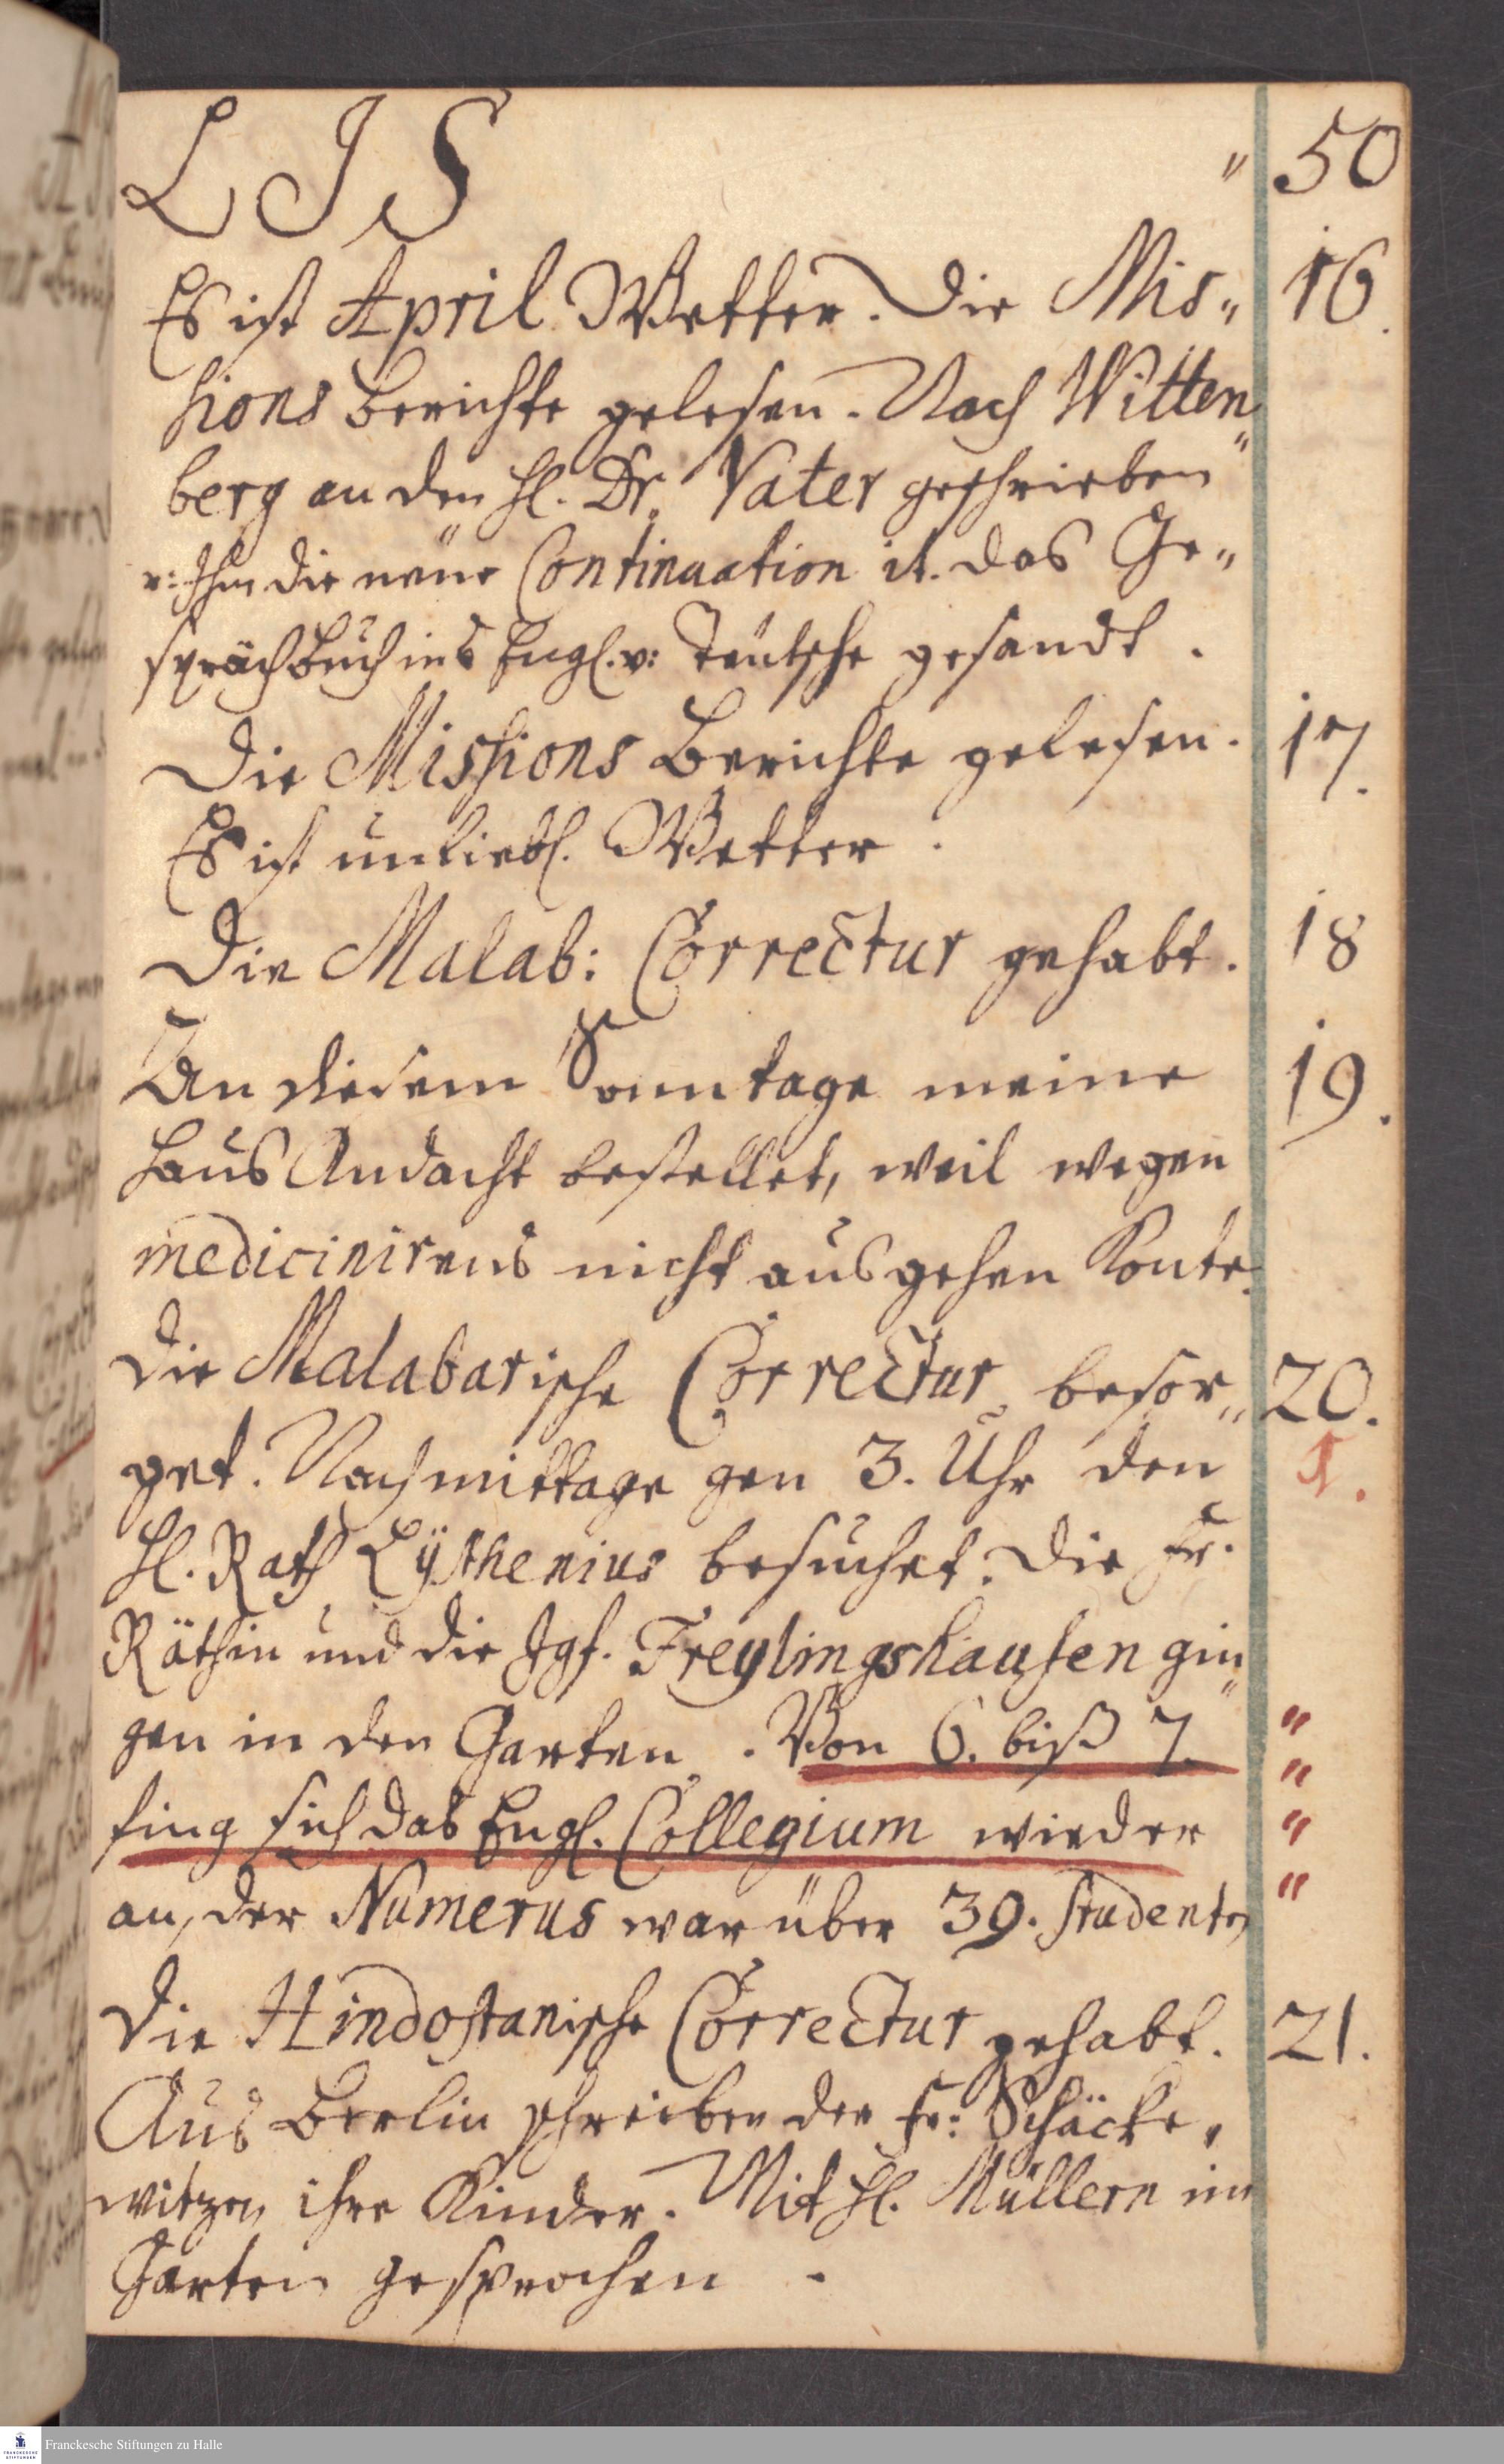 LIS " 50
Es ist April Wetter. Die Mis„ 16.
sions Berichte gelesen. Nach Witten„
berg an den H. Dr. Vater geschrieben
u: Ihm die neüe Continuation it. das Ge„
sprächbuch ins Engl. u: Teütsche gesandt.
Die Missions Berichte gelesen. 17.
Es ist unliebl. Wetter.
Die Malab: Correctur gehabt. 18
An diesem Sonntage meine 19.
Haus Andacht bestellet, weil wegen
medicinirens nicht ausgehen konte.
Die Malabarische Correctur besor„ 20.
get. Nachmittage gen 3. Uhr den 1.
H. Rath Lÿsthenius besuchet. Die Fr.
Räthin und die Jgf. Freylingshausen gin„
gen in den Garten. Von 6. biß 7. "
fing sich das Engl. Collegium wieder " "
an, der Numerus war über 39. Studenten "
Die Hindostanische Correctur gehabt. 21.
Aus Berlin schreiben der Fr: Schäcke„
witzen ihre Kinder. Mit H. Müllern im
Garten gesprochen.
Franckesche Stiftungen zu Halle